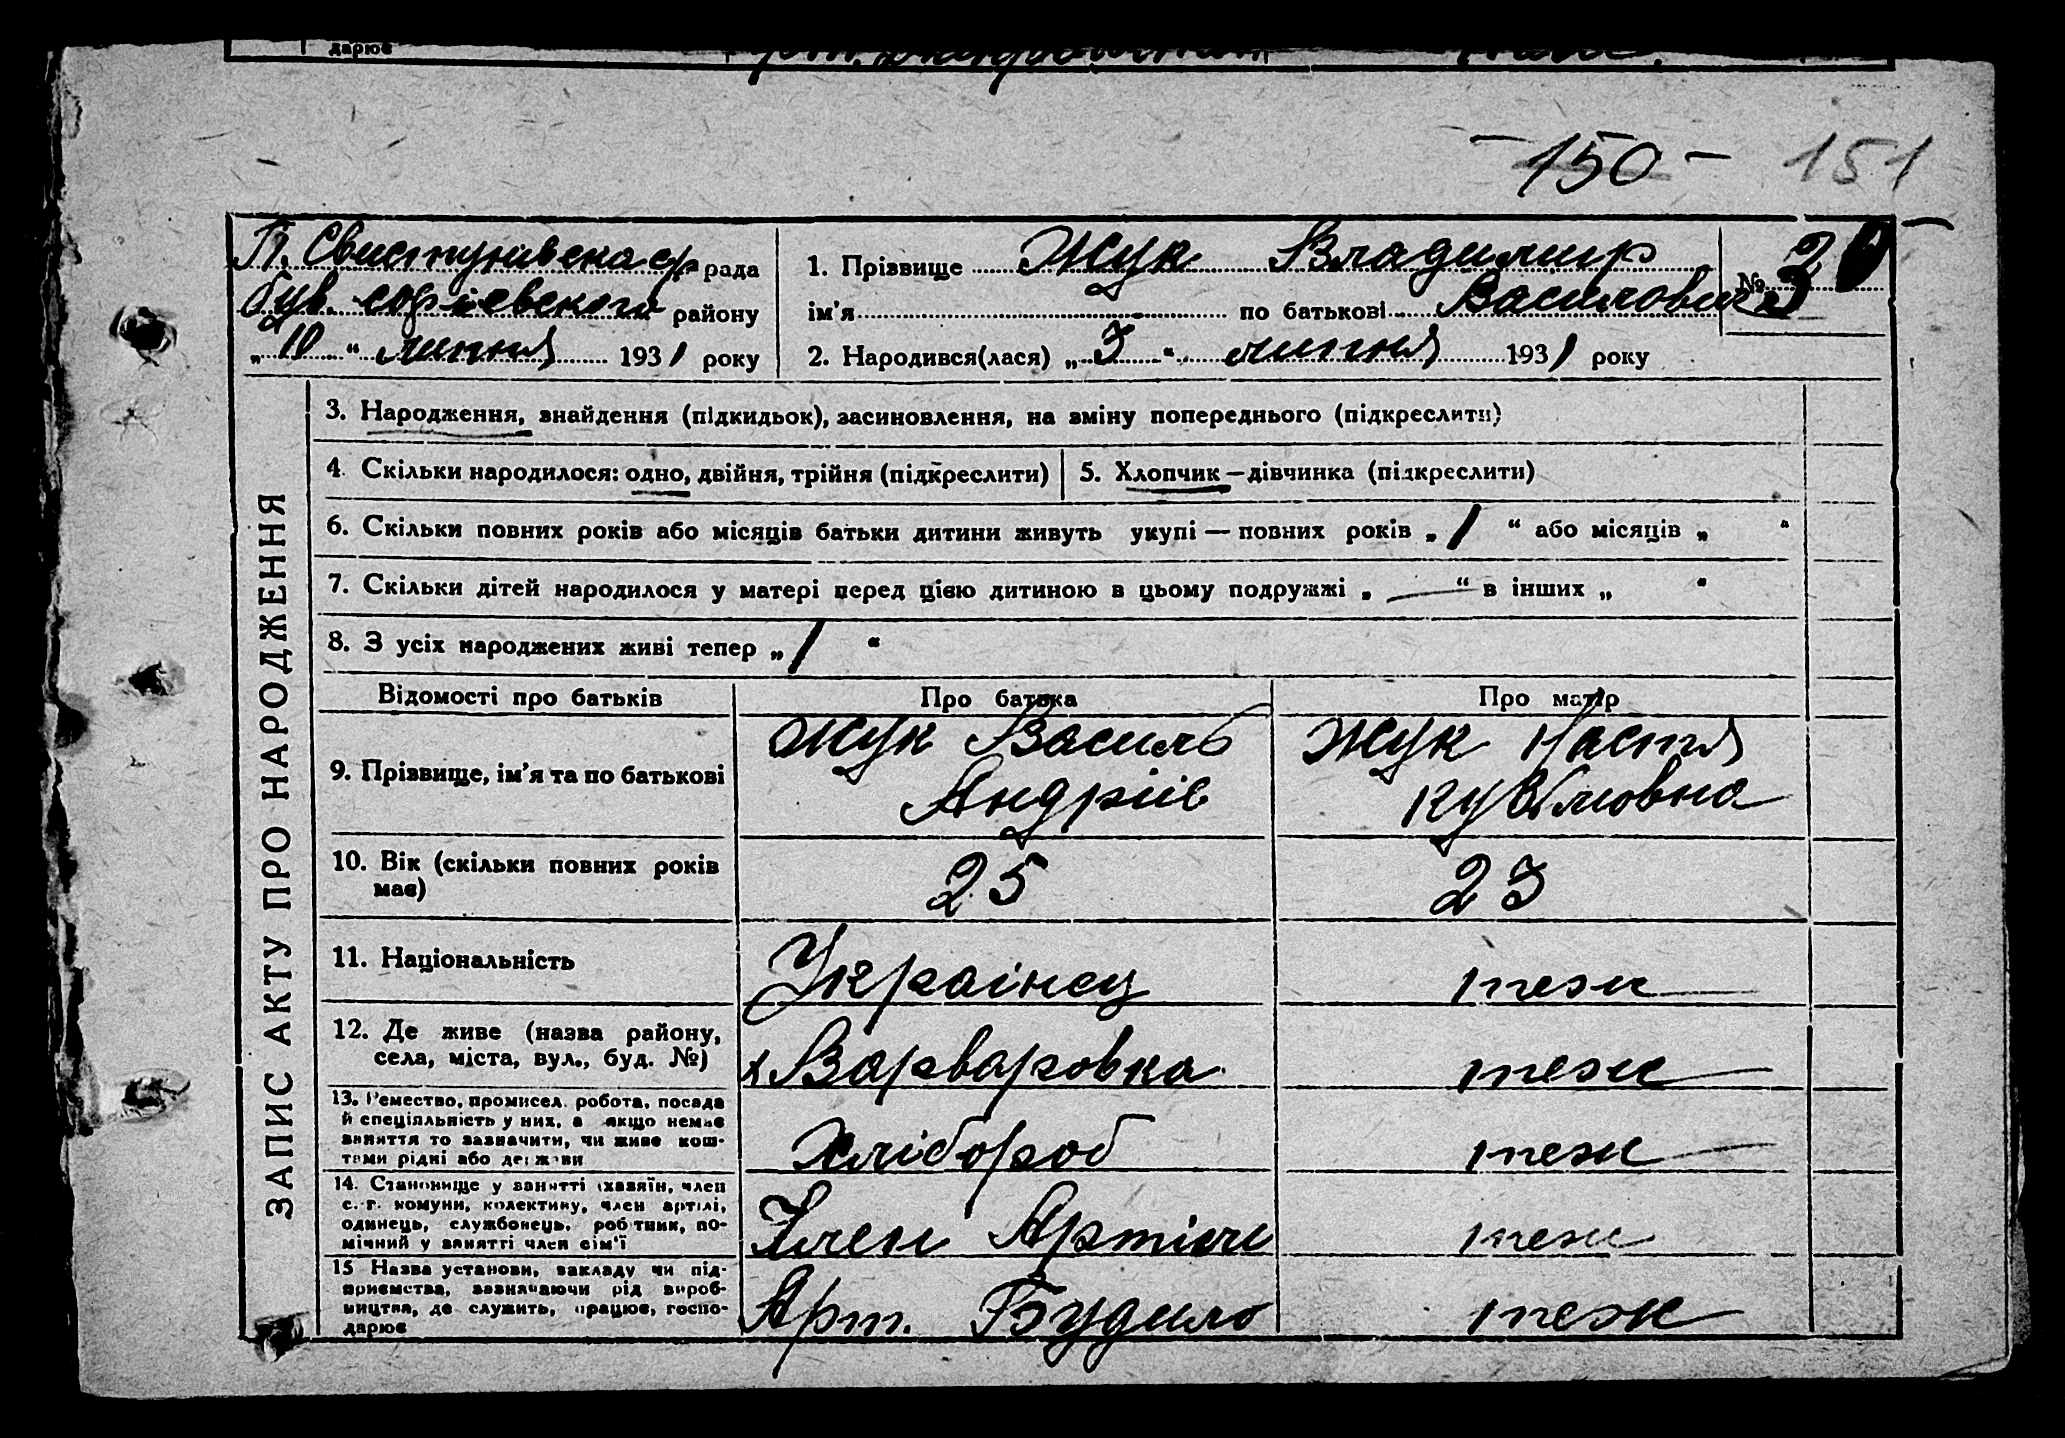 дарює
150 — 151
П. Свистунівська с/р рада
був. софієвского району
„ 10 “ липня 1931 року
1. Прізвище Жук Владимир
ім'я по батькові Василович
№ 30
2. Народився(лася) „ 3 “ липня 1931 року
ЗАПИС АКТУ ПРО НАРОДЖЕННЯ
3. Народження, знайдення (підкидьок), засиновлення, на зміну попереднього (підкреслити)
4. Скільки народилося: одно, двійня, трійня (підкреслити)
5. Хлопчик—дівчинка (підкреслити)
6. Скільки повних років або місяців батьки дитини живуть укупі — повних років „ 1 “ або місяців „ “
7. Скільки дітей народилося у матері перед цією дитиною в цьому подружжі „ — “ в інших „ “
8. З усіх народжених живі тепер „ 1 “
Відомості про батьків Про батька Про матір
9. Прізвище, ім'я та по батькові
Жук Василь
Андріїв
Жук Настя
10. Вік (скільки повних років
має)
25
23
11. Національність
Українец
теж
12. Де живе (назва району,
села, міста, вул., буд. №)
х Варваровка
теж
13. Ремество, промисел, робота, посада
й спеціяльність у них, а якщо немає
заняття то зазначити, чи живе кош-
тами рідні або держави
Хлібороб
теж
14. Становище у занятті (хазяїн, член
с.-г. комуни, колективу, член артілі,
одинець, службовець, робітник, по-
мічний у занятті член сім'ї
Член Артіли
теж
15 Назва установи, закладу чи під-
приємства, зазначаючи рід вироб-
ництва, де служить, працює, госпо-
дарює
Арт. Будило
теж